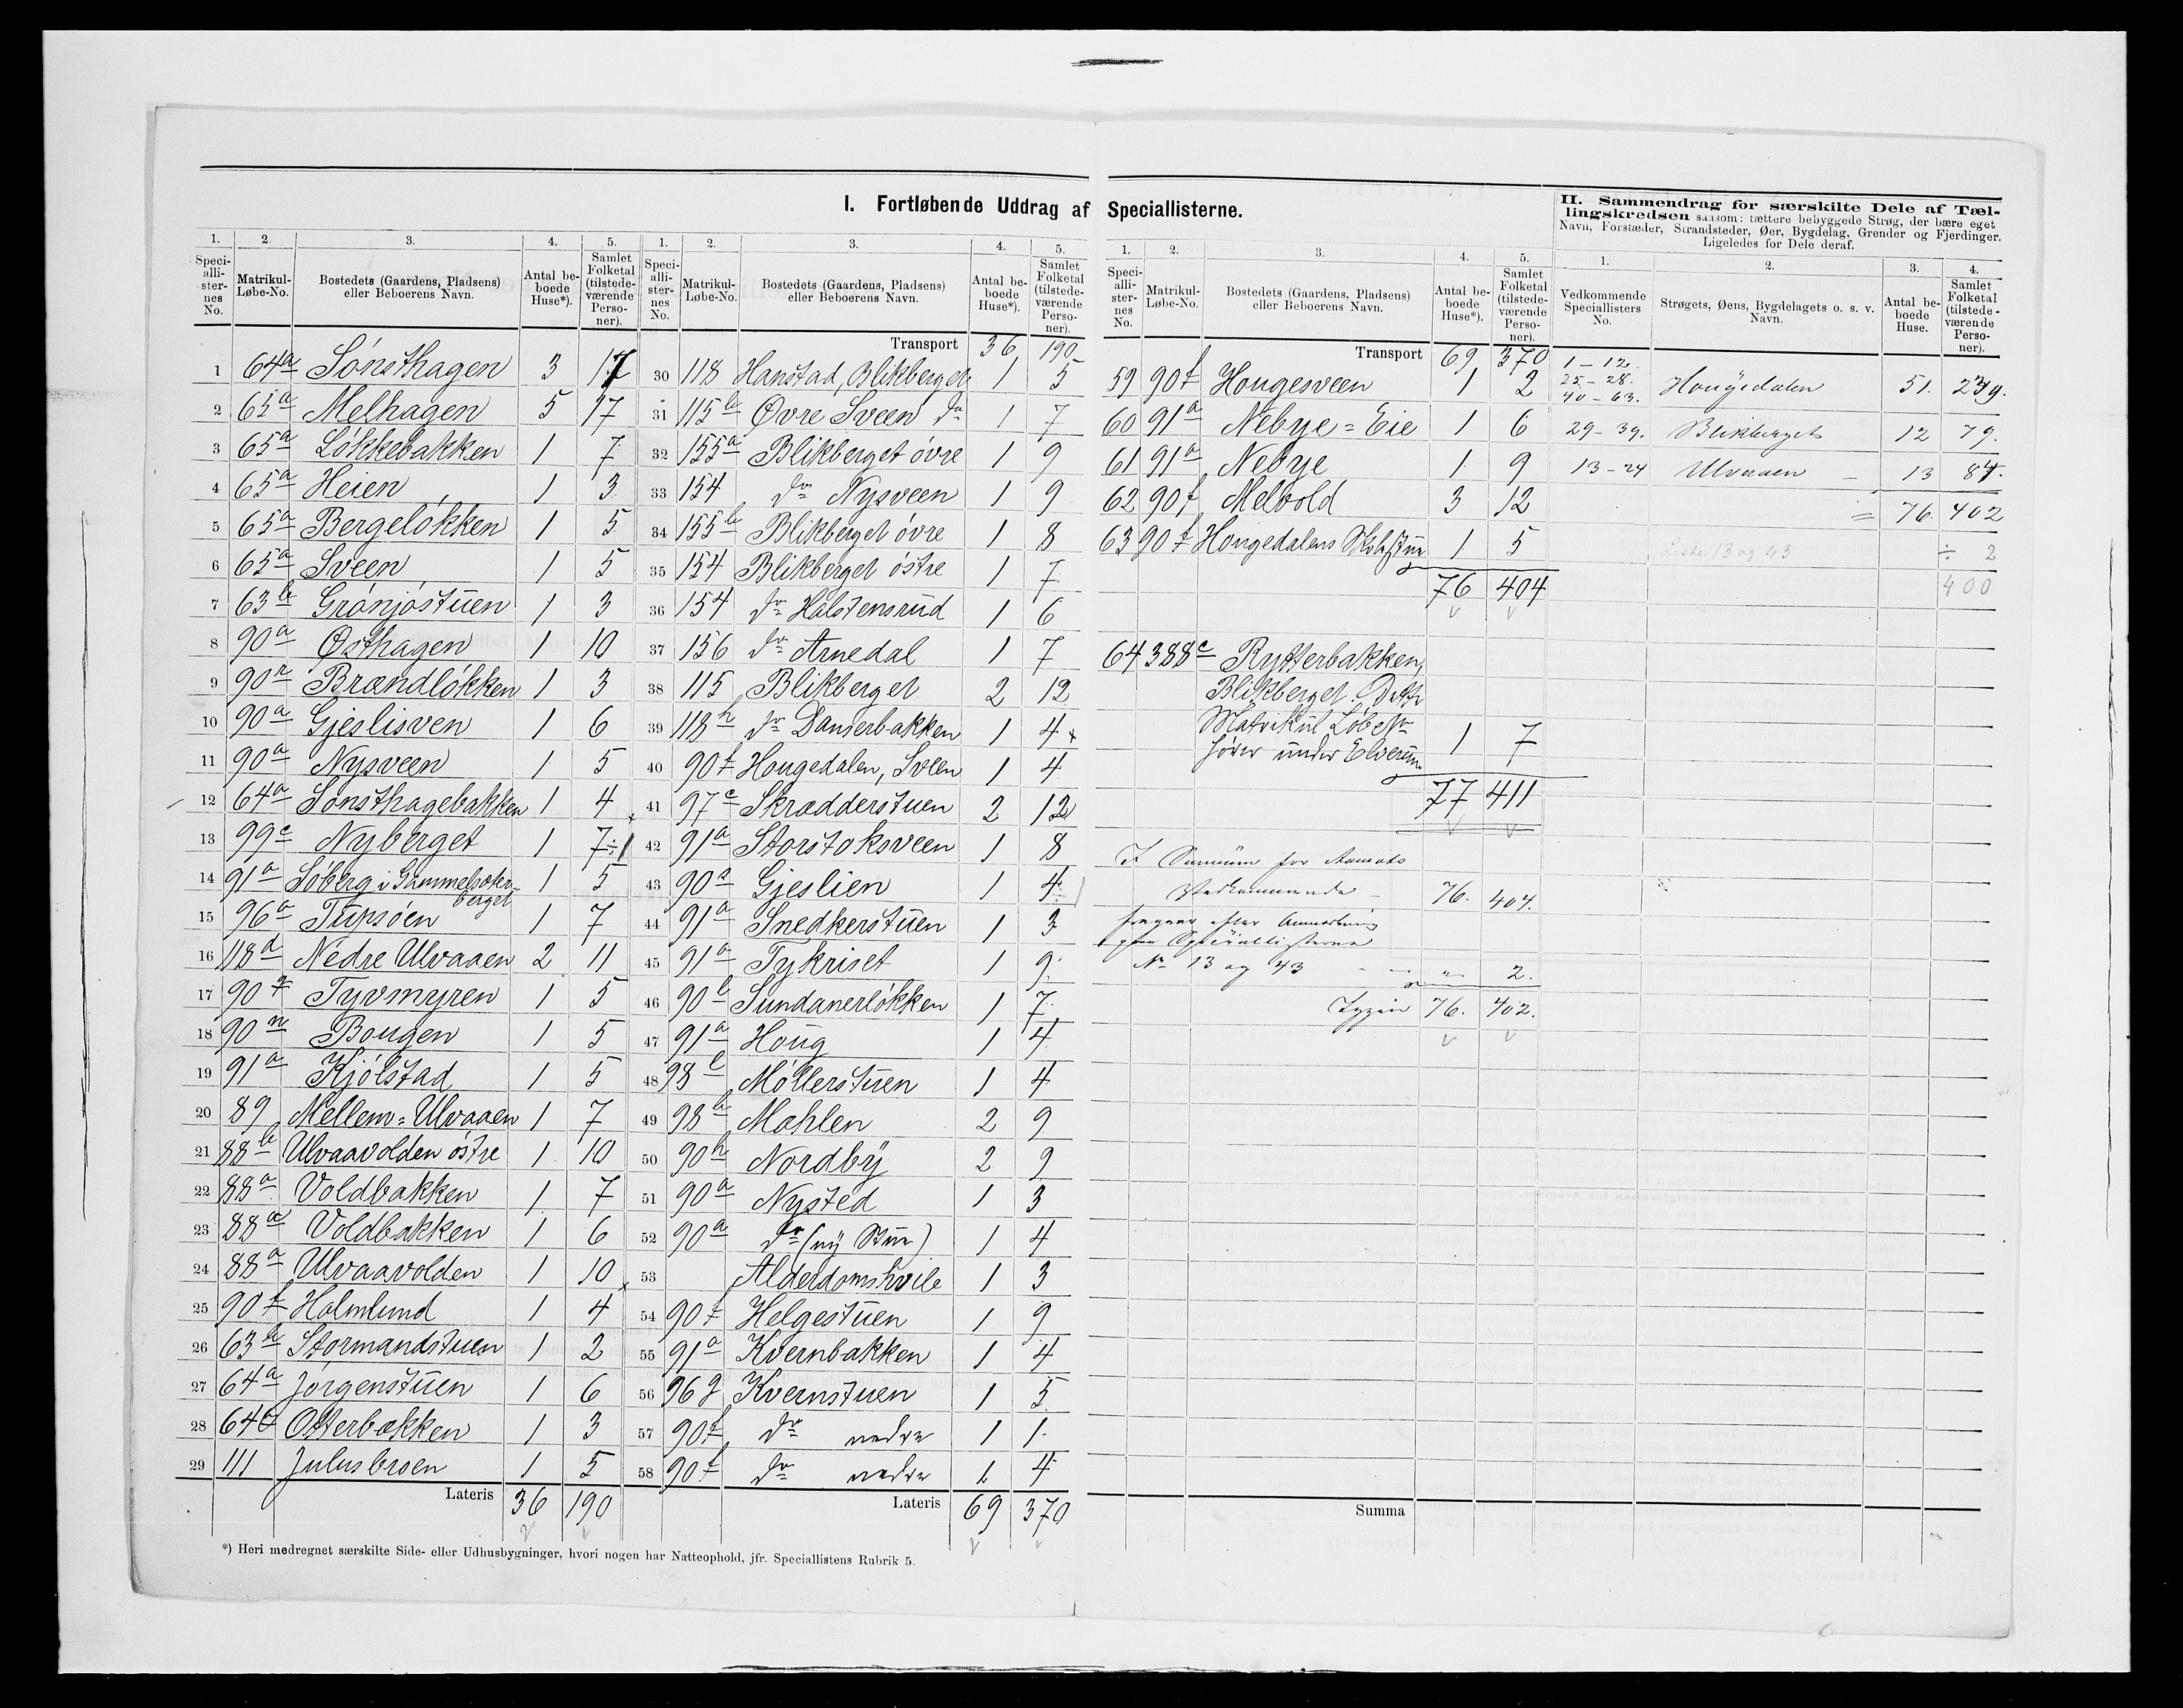 I. Fortløbende Uddrag af Speciallisterne.
1. 2. 3. 4. 5.
Speciallisternes No. Matrikul-Løbe-No. Bostedets (Gaardens, Pladsens) eller Beboerens Navn. Antal beboede Huse*). Samlet Folketal (tilstedeværende Personer).
1 64a Sónsthagen 3 17
2 65a Melhagen 5 17
3 65a Lókkebakken 1 7
4 65a Heien 1 3
5 65a Bergelókken 1 5
6 65a Sveen 1 5
7 63b Grónjóstuen 1 3
8 90a Østhagen 1 10
9 90r Brændlókken 1 3
10 90a Gjeslisven 1 6
11 90a Nysveen 1 5
12 64a Sónsthagebakken 1 4
13 99c Nyberget 1 7÷1
14 91a Sóberg i Gammelsæterberget 1 5
15 96a Tupsóen 1 7
16 118d Nedre Ulvaaen 2 11
17 90q Tyvmyren 1 5
18 90n Bougen 1 5
19 91a Kjólstad 1 5
20 89 Mellem=Ulvaaen 1 7
21 88b Ulvaavolden óstre 1 10
22 88a Voldbakken 1 7
23 88a Voldbakken 1 6
24 88a Ulvaavolden 1 10
25 90f Holmlund 1 4
26 63b Stormandstuen 1 2
27 64a Jórgenstuen 1 6
28 64a Otterbækken 1 3
29 111 Julusbroen 1 5
Lateris 36 190
1. 2. 3. 4. 5.
Speciallisternes No. Matrikul-Løbe-No. Bostedets (Gaardens, Pladsens) eller Beboerens Navn. Antal beboede Huse*). Samlet Folketal (tilstedeværende Personer).
Transport 36 190
30 118 Hanstad, Blikberget 1 5
31 115b Øvre Sveen do 1 7
32 155a Blikberget óvre 1 9
33 154 do Nysveen 1 9
34 155b Blikberget óvre 1 8
35 154 Blikberget óstre 1 7
36 154 do Halstensrud 1 6
37 156 do Arnedal 1 7
38 115 Blikberget 2 12
39 118h do Danserbakken 1 4
40 90f Hougedalen, Sveen 1 4
41 97c Skrædderstuen 2 12
42 91a Storstoksveen 1 8
43 90s Gjeslien 1 4
44 91a Snedkerstuen 1 3
45 91a Tykriset 1 9
46 90b Sundanerlókken 1 7
47 91a Houg 1 4
48 98b Móllerstuen 1 4
49 98b Mohlen 2 9
50 90h Nordby 2 9
51 90a Nysted 1 3
52 90a do (ny Stue) 1 4
53 Alderdomshvile 1 3
54 90f Helgestuen 1 9
55 91a Kvernbakken 1 4
56 96g Kvernstuen 1 5
57 90f do nedre 1 1
58 90f do nedre 1 4
Lateris 69 370
1. 2. 3. 4. 5.
Speciallisternes No. Matrikul-Løbe-No. Bostedets (Gaardens, Pladsens) eller Beboerens Navn. Antal beboede Huse*). Samlet Folketal (tilstedeværende Personer).
Transport 69 370
59 90f Hougesveen 1 2
60 91a Nebye=Eie 1 6
61 91a Nebye 1 9
62 90f Melvold 3 12
63 90f Hougedalens Skolestue 1 5
76 404
64 388c Rytterbakken,
Blikberget. Dette
Matrikul Løbe No
hører under Elverum 1 7
77 411
Summum for Aamots
Vedkommende 76. 404.
fragaar efter Anmærkning
paa Speciallisterne
No 13 og 43 2.
Igjen 76. 402.
II. Sammendrag for særskilte Dele af Tællingskredsen saasom: tættere bebyggede Strøg, der bære eget
Navn, Forstæder, Strandsteder, Øer, Bygdelag, Grender og Fjerdinger.
Ligeledes for Dele deraf.
1. 2. 3. 4.
Vedkommende Speciallisters No. Strøgets, Øens, Bygdelagets o. s. v. Navn. Antal beboede Huse. Samlet Folketal (tilstedeværende Personer).
1 – 12.
25 – 28.
40 – 63. Hougedalen 51. 239.
29 – 39. Blikberget 12 79.
13 – 24 Ulvaaen 13 84.
= 76. 402
Liste 13 og 43 ÷ 2
400
Summa
*) Heri medregnet særskilte Side- eller Udhusbygninger, hvori nogen har Natteophold, jfr. Speciallistens Rubrik 5.